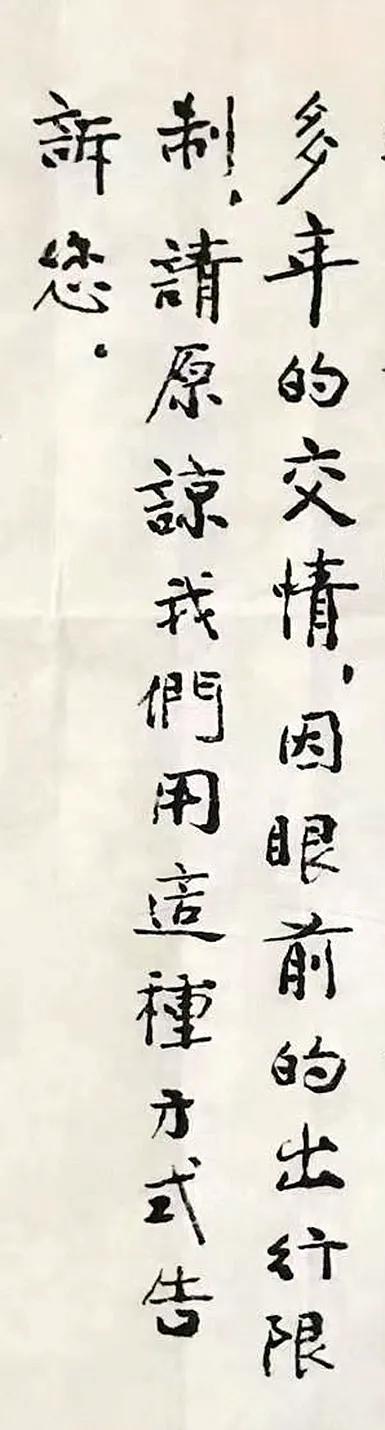 多年的交情，因眼前的出行限
制，請原諒我們用這種方式告
訴您。